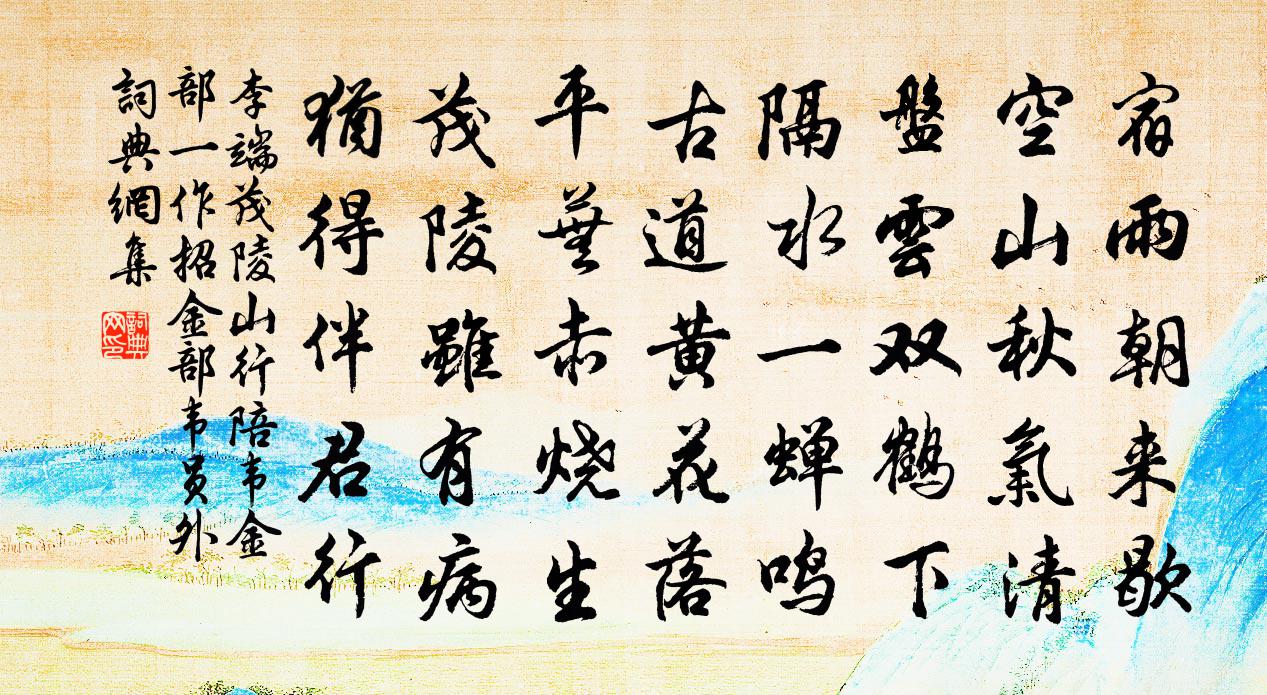 宿雨朝来歇
空山秋氣清
盤雲双鶴下
隔水一蝉鸣
古道黄花落
平蕪赤烧生
茂陵雖有病
猶得伴君行
李端茂陵山行陪韦金
部一作招金部韦员外
詞典網集
詞典网印